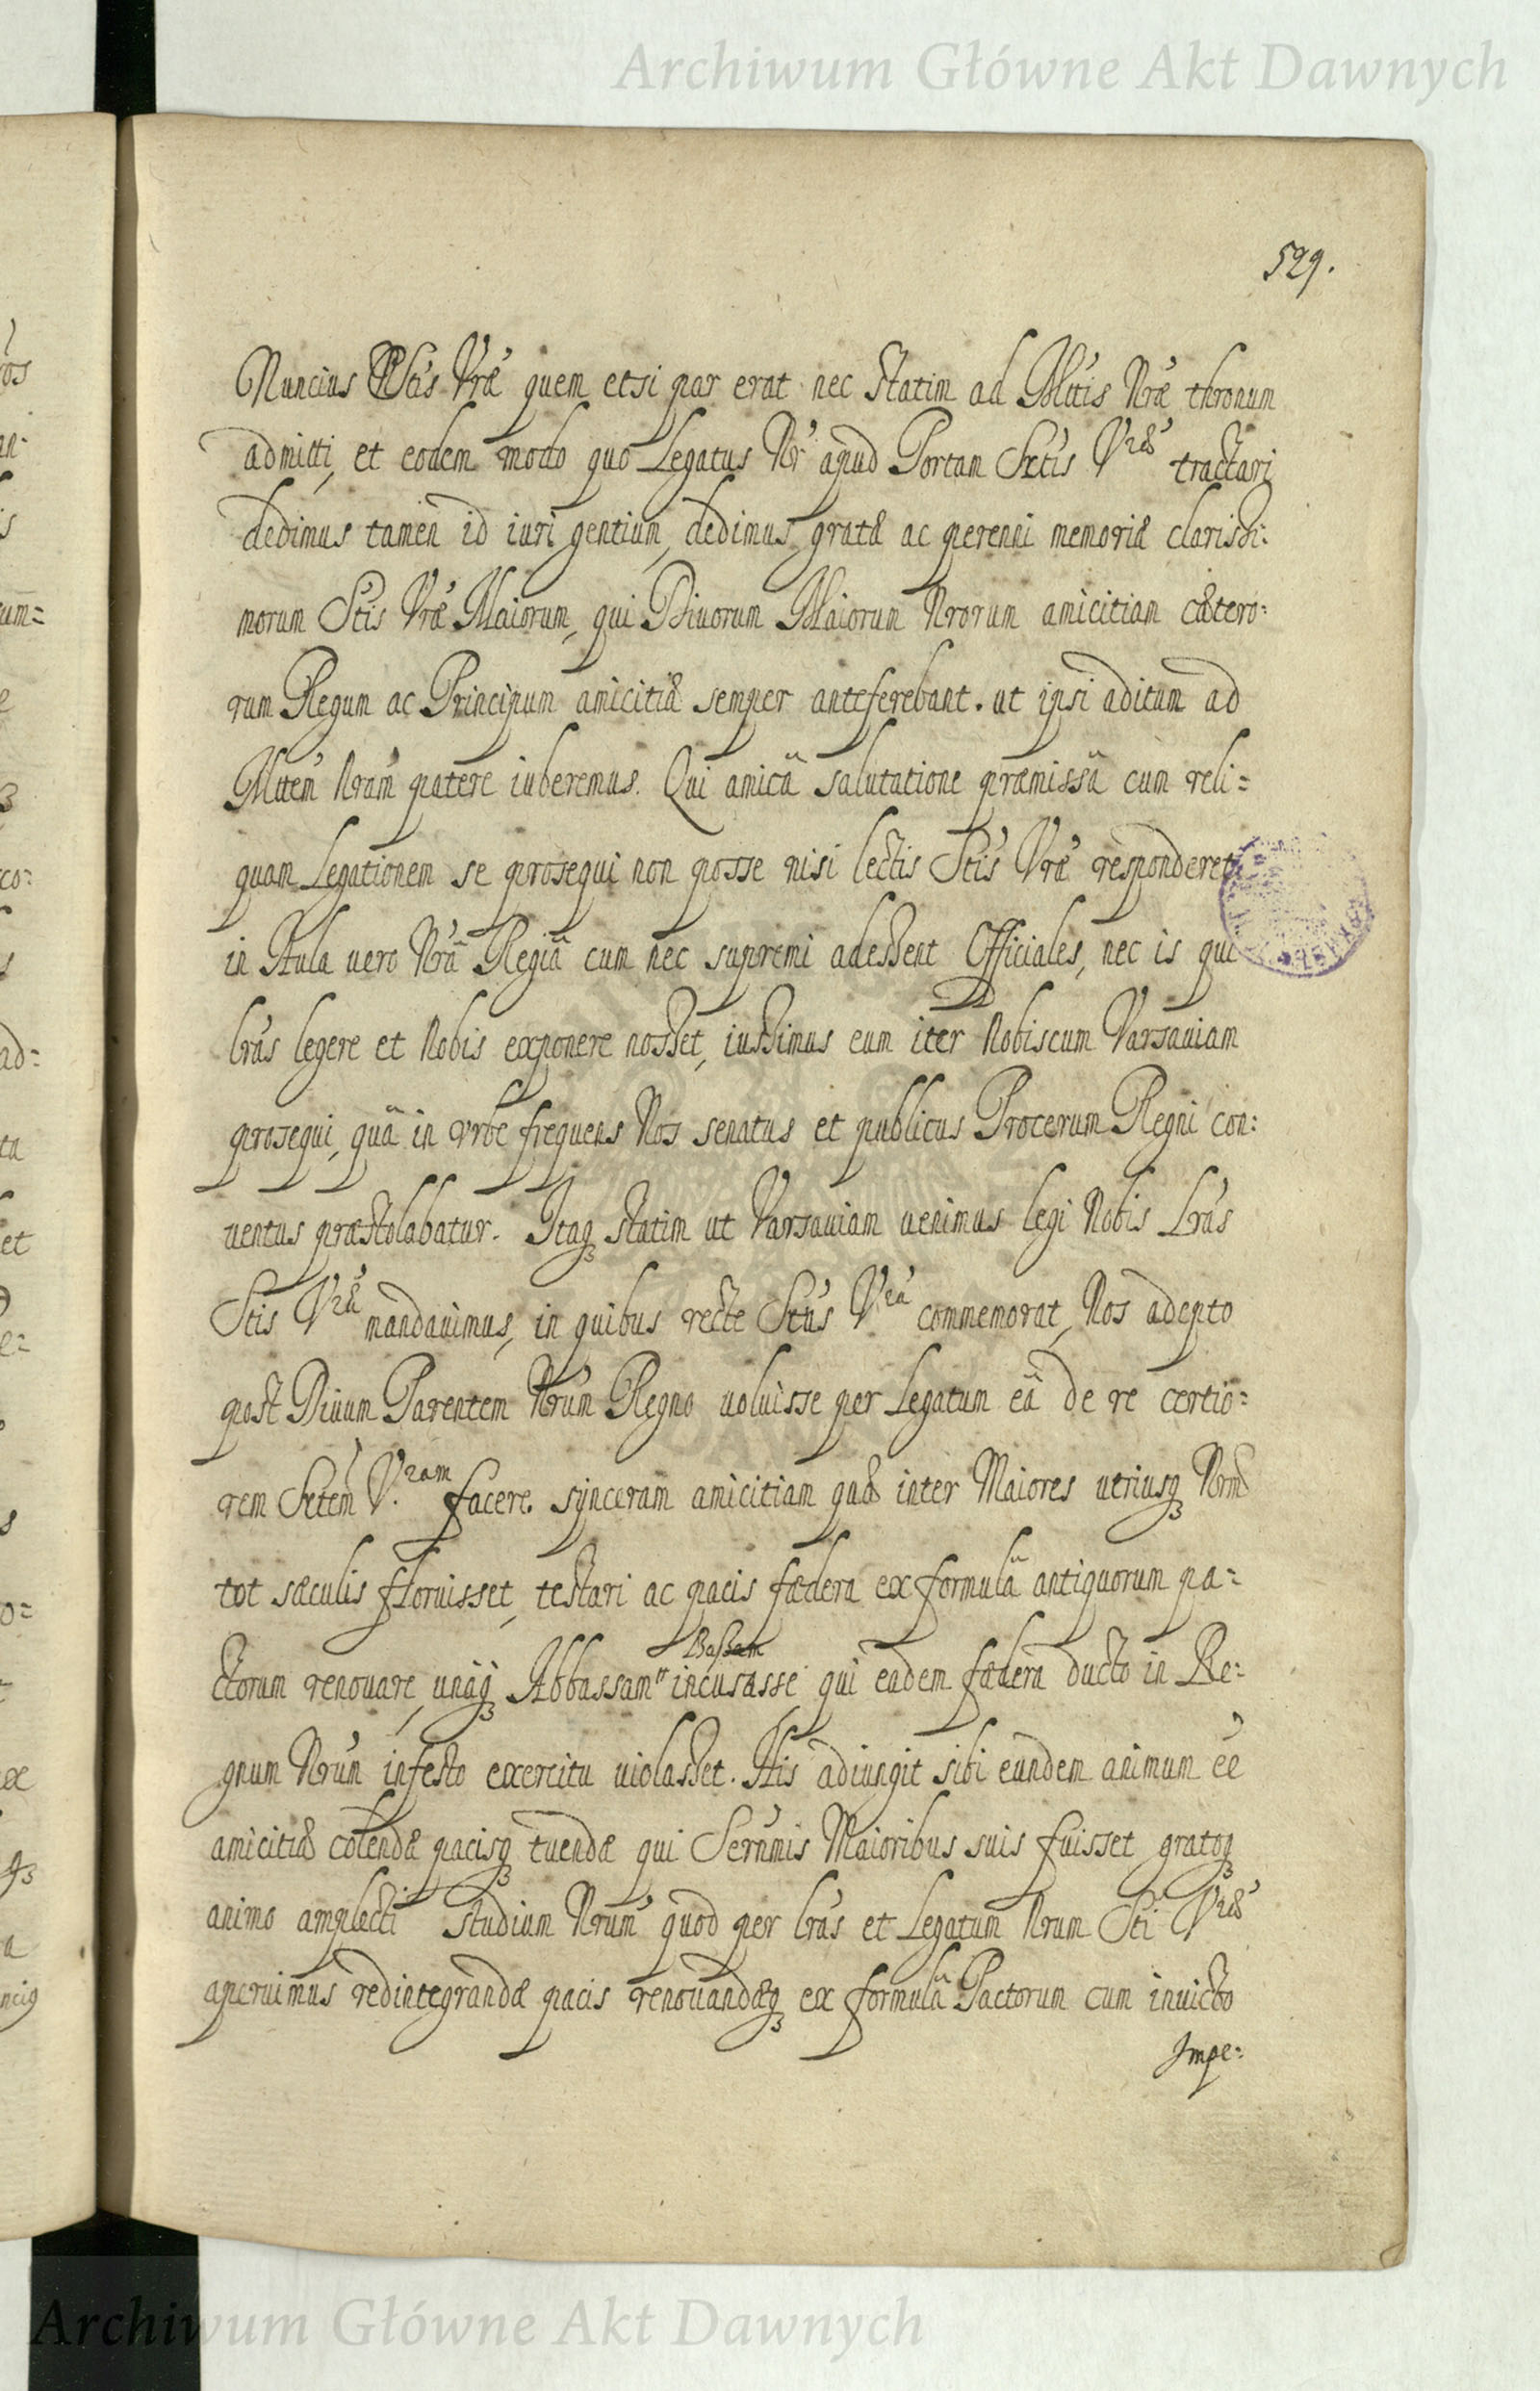 Archiwum Główne Akt Dawnych
529.
Nuncius Stis Vræ quem etsi par erat nec statim ad Mttis Nræ thronum
admitti, et eodem modo quo Legatus Nr apud Portam Sttis Vræ tractari
dedimus tamen id iuri gentium, dedimus gratæ ac perenni memoriæ clarissi:
morum Stis Vræ Maiorum, qui Divorum Maiorum Nrorum amicitiam cætero:
rum Regum ac Principum amicitiæ semper anteferebant. ut ipsi aditum ad
Mttem Nram patere iuberemus. Qui amicâ salutatione præmissâ cum reli=
quam Legationem se prosequi non posse nisi lectis Stis Vræ responderet
in Aula vero Nrâ Regiâ cum nec supremi adessent Officiales, nec is qui
lras legere et Nobis exponere nosset, iussimus eum iter Nobiscum Varsaviam
prosequi, quâ in vrbe frequens Nos senatus et publicus Procerum Regni con:
uentus præstolabatur. Itaq statim ut Varsauiam uenimus legi Nobis Lras
Stis Vræ mandauimus, in quibus recte Stus Vra commemorat, Nos adepto
post Diuum Parentem Nrum Regno uoluisse per Legatum eâ de re certio=
rem Sttem V.ram facere. synceram amicitiam quæ inter Maiores utriusq Nrm
tot sæculis floruisset, testari ac pacis fædera ex formulâ antiquorum pa=
ctorum renouare, unàq Abbassam Bassam incusasse qui eadem fædera ducto in Re:
gnum Nrum infesto exercitu uiolasset. His adiungit sibi eundem animum ee
amicitiæ colendæ pacisq tuendæ qui Serñmis Maioribus suis fuisset gratoq
animo amplecti studium Nrum quod per lras et Legatum Nrum Sti Vræ
aperuimus redintegrandæ pacis renouandæq ex formulâ Pactorum cum inuicto
Impe:
Archiwum Główne Akt Dawnych